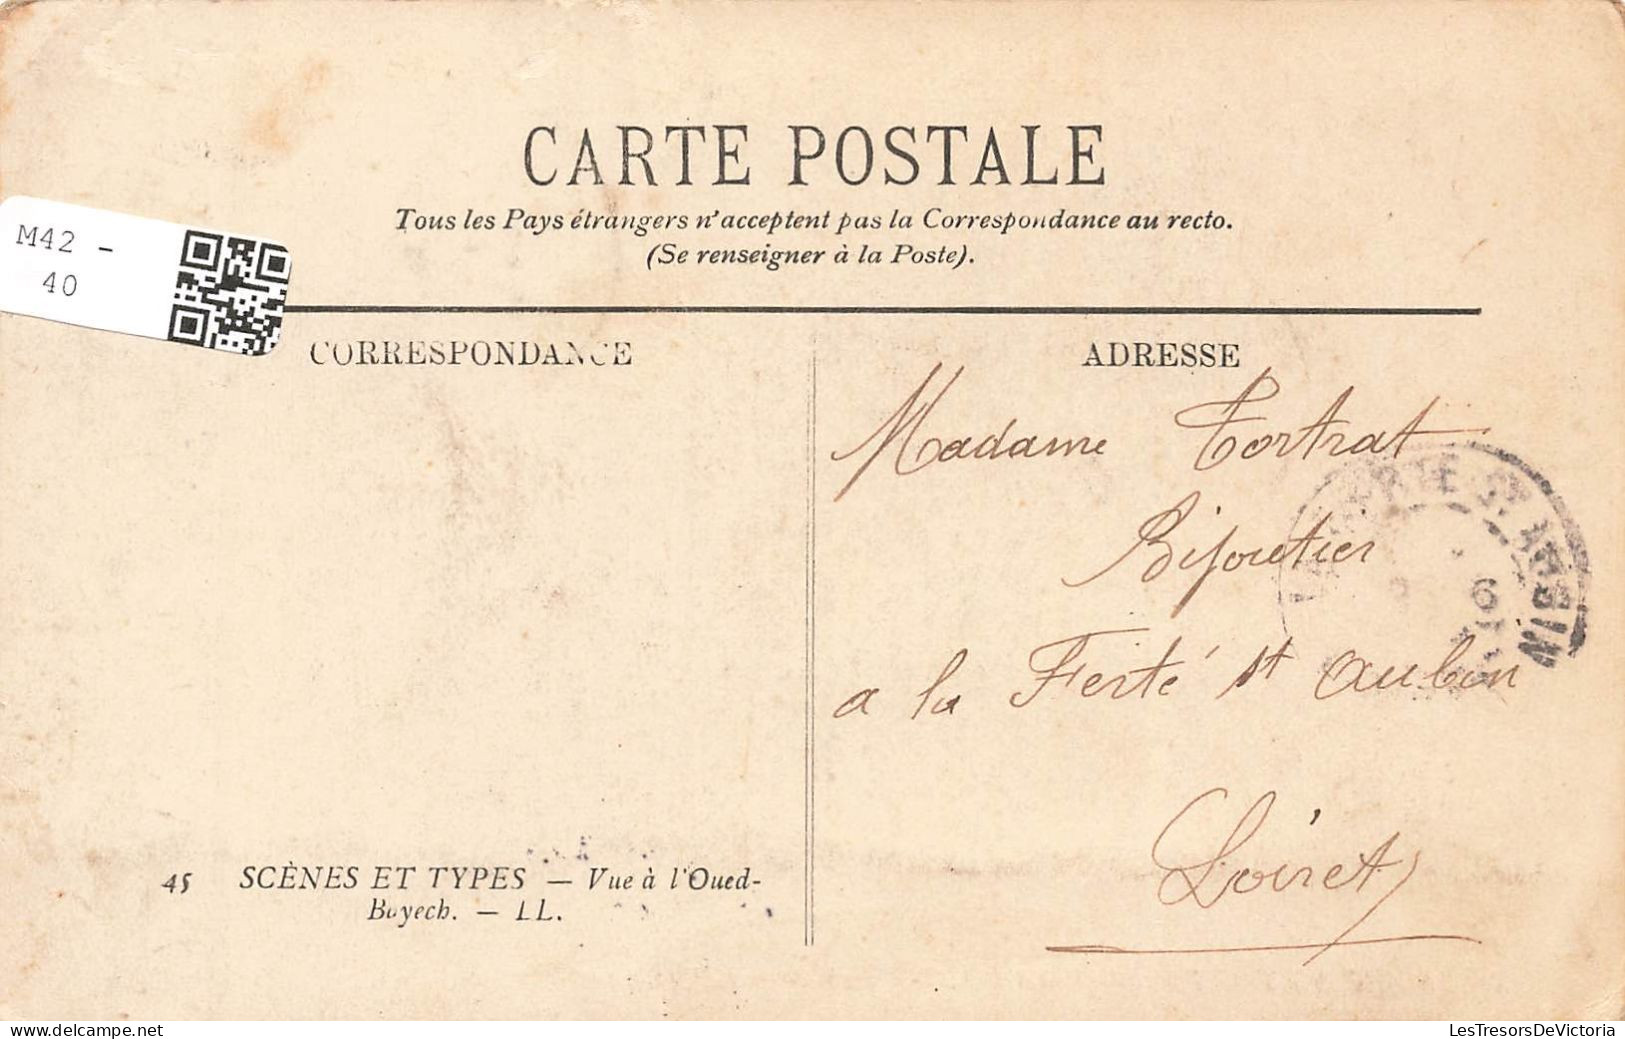 CARTE POSTALE
Tous les Pays étrangers n'acceptent pas la Correspondance au recto.
(Se renseigner à la Poste).
M42 -
40
CORRESPONDANCE
ADRESSE
Madame Tortrat
Bijoutier
a la Ferté St Aubin
Loiret
45 SCÈNES ET TYPES — Vue à l'Oued-
Boyech. — LL.
LA FERTE-ST AUBIN
LesTresorsDeVictoria